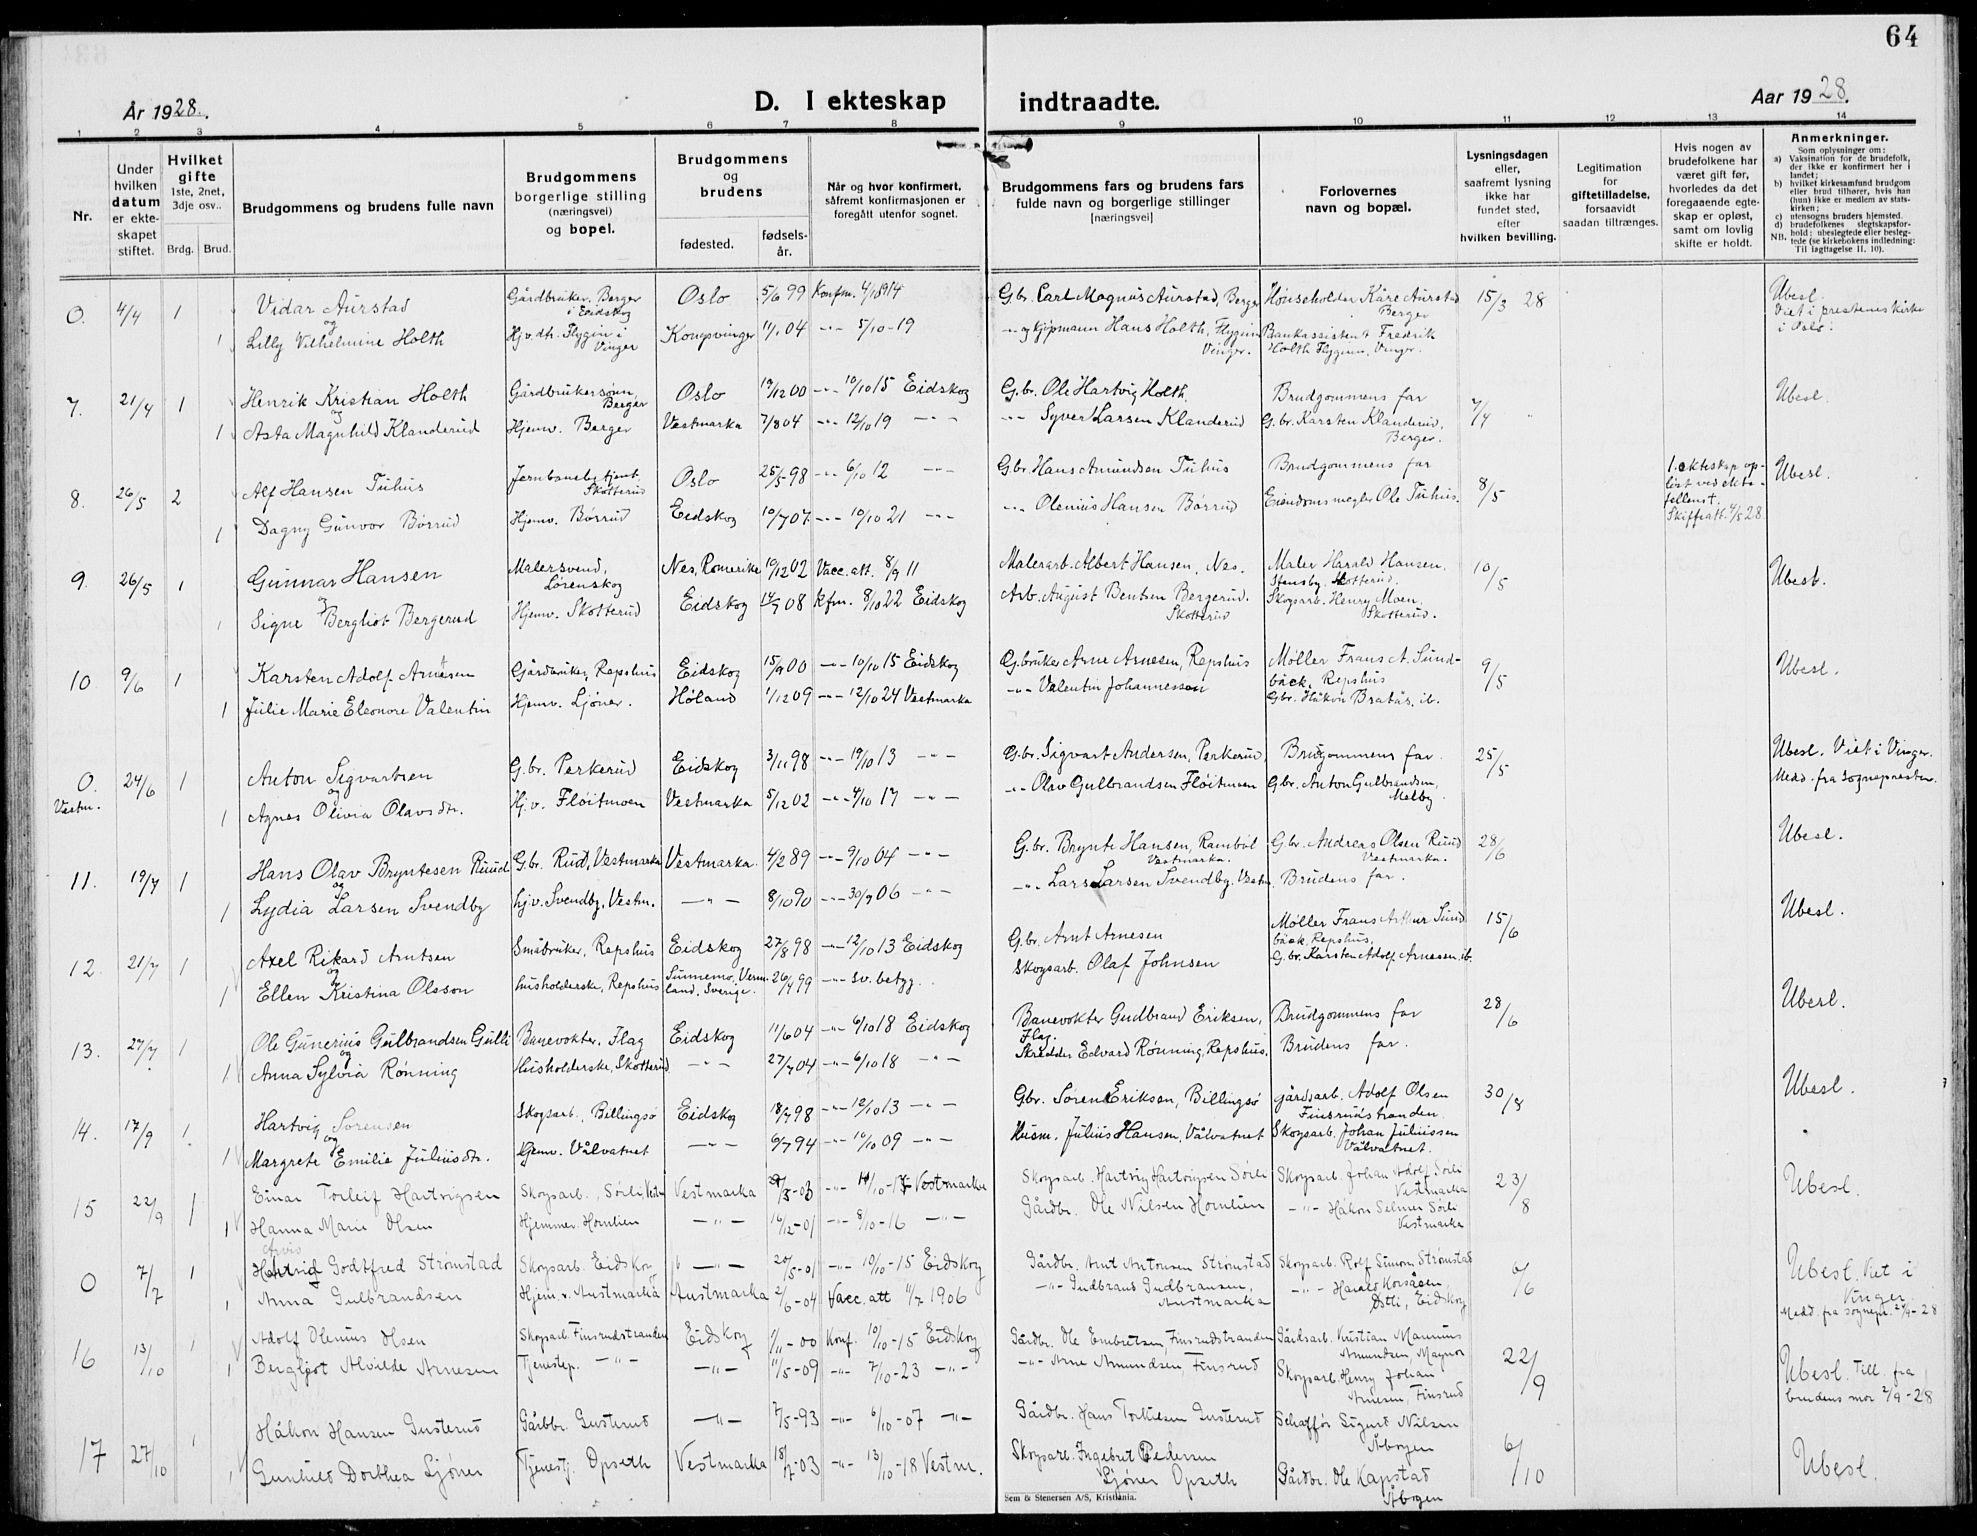 64
År 1928.
D. I ekteskap indtraadte.
Aar 1928.
1 2 3 4 5 6 7 8 9 10 11 12 13 14
Nr.
Under hvilken datum er ekte- skapet stiftet.
Hvilket gifte 1ste, 2net, 3dje osv..
Brdg. Brud.
Brudgommens og brudens fulle navn
Brudgommens borgerlige stilling (næringsvei) og bopel.
Brudgommens og brudens
fødested.
fødsels- år.
Når og hvor konfirmert, såfremt konfirmasjonen er foregått utenfor sognet.
Brudgommens fars og brudens fars fulde navn og borgerlige stillinger [næringsvei]
Forlovernes navn og bopæl.
Lysningsdagen eller, saafremt lysning ikke har fundet sted, efter hvilken bevilling.
Legitimation for giftetilladelse, forsaavidt saadan tiltrænges.
Hvis nogen av brudefolkene har været gift før, hvorledes da det foregaaende egte- skap er opløst, samt om lovlig skifte er holdt.
Anmerkninger.
Som oplysninger om:
a) Vaksination for de brudefolk, der ikke er konfirmert her i landet;
b) hvilket kirkesamfund brudgom eller brud tilhører, hvis han (hun) ikke er medlem av stats- kirken;
c) utensogns bruders hjemsted.
d) brudefolkenes slegtskapsfor- hold; ubeslegtede eller besleg- tede (se kirkebokens indledning:
NB. Til iagttagelse II. 10).
0. 4/4 1 Vidar Aurstad Gårdbruker, Berger i Eidskog Oslo 5/6 99 Konfm. 4/10 14 G.br. Carl Magnus Aurstad, Berger Høuseholder Kåre Aurstad Berger 15/3 28 Ubesl. Viet i prestenes kirke i Oslo.
og
1 Lilly Vilhelmine Holth Hjv.dtr. Flygin i Vinger Kongsvinger 11/1 04 -"- 5/10-19 -"- og kjøpmann Hans Holth, Flygin Vinger. Bankassistent Fredrik Holth Flyginn, Vinger.
7. 21/4 1 Henrik Kristian Holth Gårdbrukersønn, Berger Oslo 19/12 00 -"- 10/10 15 Eidskog G.br. Ole Hartvig Holth. Brudgommens far 7/4 " Ubesl.
og
1 Asta Magnhild Klanderud Hjemv. Berger Vestmarka 7/8 04 -"- 12/10 19 -"- -"- Syver Larsen Klanderud G.br. Karsten Klanderud, Berger.
8. 26/5 2 Alf Hansen Tuhus Jernbanebetjent Skotterud Oslo 25/5 98 -"- 6/10 12 -"- G.br. Hans Amundsen Tuhus Brudgommens far 8/5 1. ekteskap op- løst ved ekte- fellens †. Skifteatt. 4/5 28 Ubesl.
1 Dagny Gunvor Børrud Hjemv. Børrud Eidskog 10/7 07 -"- 10/10 21 -"- -"- Olenius Hansen Børrud Eiendomsmegler Ole Tuhus.
9. 26/5 1 Gunnar Hansen Malersvend, Lørenskog Nes, Romerike 19/12 02 Vacc.att. 8/9 11 Malerarb. Albert Hansen, Nes. Maler Harald Hansen, Stensby, Skotterud. 10/5 Ubesl.
og
1 Signe Bergliot Bergerud Hjemv. Skotterud Eidskog 14/7 08 kfm. 8/10 22 Eidskog Arb. August Bentsen Bergerud. Skotterud Skogsarb. Henry Moen, Skotterud.
10 9/6 1 Karsten Adolf Arntsen Gårdbruker, Repshus Eidskog 15/9 00 -"- 10/10 15 Eidskog G.bruker Arne Arnesen, Repshus Møller Frans A. Sund- bäck, Repshus 9/5 Ubesl.
1 Julie Marie Eleonore Valentin Hjemv. Sjøner. Høland 1/12 09 -"- 12/10 24 Vestmarka -"- Valentin Johannessen Gbr. Håkon Bratås, ib.
0. Vestm. 24/6 1 Anton Sigvartsen G.br. Perkerud Eidskog 3/11 98 -"- 19/10 13 -"- G.br. Sigvart Andersen, Perkerud, Brudgommens far 25/5 Ubesl. Viet i Vinger. Medd. fra sognepresten.
og
1 Agnes Olivia Olavsdtr. Hj.v. Fløitmoen Vestmarka 5/12 02 -"- 4/10 17 -"- -"- Olav Gulbrandsen Fløitmoen Gbr. Anton Gulbrandsen, Malby
11. 19/7 1 Hans Olav Bryntesen Ruud G.br. Rud, Vestmarka Vestmarka. 4/2 89 -"- 9/10 04 -"- G.br. Brynte Hansen, Rambøl Vestmarka. G.br. Andreas Olsen Ruud Vestmarka. 28/6 Ubesl.
og
1 Lydia Larsen Svendby hj.v. Svendby, Vestm. -"- 8/10 90 -"- 30/9 06 -"- -"- Lars Larsen Svendby. Vestm. Brudens far.
12. 21/7 1 Axel Rikard Arntsen Småbruker, Repshus Eidskog 27/8 98 -"- 12/10 13 Eidskog G.br. Arnt Arnesen Møller Frans Arthur Sund bäck, Repshus, 15/6 Ubesl.
og
1 Ellen Kristina Olsson husholderske, Repshus Sunnemo, Verm. land, Sverige. 26/4 99 -"- sv. betyg. Skogsarb. Olaf Johnsen G.br. Karsten Adolf Arnesen, ib.
13. 27/7 1 Ole Gunerius Gulbrandsen Gulli Banevokter, Flag Eidskog 11/6 04 -"- 6/10 18 Eidskog Banevokter Gudbrand Eriksen, Flag. Brudgommens far 28/6 Ubesl.
og
1 Anna Sylvia Rønning Husholderske, Skotterud -"- 27/7 04 -"- 6/10 18 -"- Skredder Edvard Rønning, Repshus. Brudens far.
14. 17/9 1. Hartvig Sørensen Skogsarb., Billingsø Eidskog 18/7 98 -"- 12/10 13 -"- Gbr. Søren Eriksen, Billingsø gårdsarb. Adolf Olsen Finsrudstranden. 30/8 Ubesl.
og
1 Margrete Emilie Juliusdtr. Hjemv. Vålvatnet -"- 6/7 94 -"- 10/10 09 -"- Husm. Julius Hansen, Vålvatnet Skogsarb. Johan Juliussen Vålvatnet.
15 22/9 1 Einar Torleif Hartvigsen Skogsarb., Sørli Vestm Vestmarka -03 -"- Vestmarka Skogsarb. Hartvig Hartvigsen Sørli Skogsarb. Johan Adolf Sørli Vestmarka 23/8 Ubesl.
1 Hanna Marie Olsen Hjemmev. Hornlien -"- 16/12-01 -"- 8/10-16 -"- Gårdbr. Ole Nilsen Hornlien -"- Håkon Selmer Sørli Vestmarka
0 7/7 1 Arvid Godtfred Strømstad Skogsarb. Eidskog -"- 20/5-01 -"- 10/10-15 Eidskog Gårdbr. Arnt Antonsen Strømstad Skogsarb. Rolf Simon Strømstad 6/6 Ubesl. Viet i Vinger. Medd. fra sognepr. -28
1 Anna Gulbrandsen Hjem.v. Austmarka Austmarka 2/6-04 Vacc. att 4/7 1906 -"- Gudbrand Gudbransen, Austmarka -"- Harald Korsåsen, Østli, Eidskog
16 13/10 1 Adolf Olenius Olsen Skogsarb. Finsrudstranden Eidskog 1/11-00 Konf. 10/10-15 Eidskog Gårdbr. Ole Embretsen, Finsrudstranden Gårdsarb. Kristian Magnus Amundsen, Magnor 22/9 Ubesl. Till. fra brudens mor 2/9-28
1 Bergljot Alvilde Arnesen Tjenestep. -"- -"- 11/5-09 -"- 7/10-23 -"- -"- Arne Amundsen, Finsrud Skogsarb. Henry Johan Arnesen, Finsrud
17 27/10 1 Håkon Hansen Gusterud Gårdbr. Gusterud -"- 7/5-93 -"- 6/10-07 -"- Gårdbr. Hans Torkilsen Gusterud Schaffør Sigurd Nilsen Åbogen 6/10 Ubesl.
1 Gunhild Dorthea Sjøner Tjenestj. Opseth Vestmarka 18/7-03 -"- 13/10-18 Vestm. Skogsarb. Ingebret Pedersen Sjøner Opseth Gårdbr. Ole Kapstad Åbogen
Sem & Stenersen A/S, Kristiania.